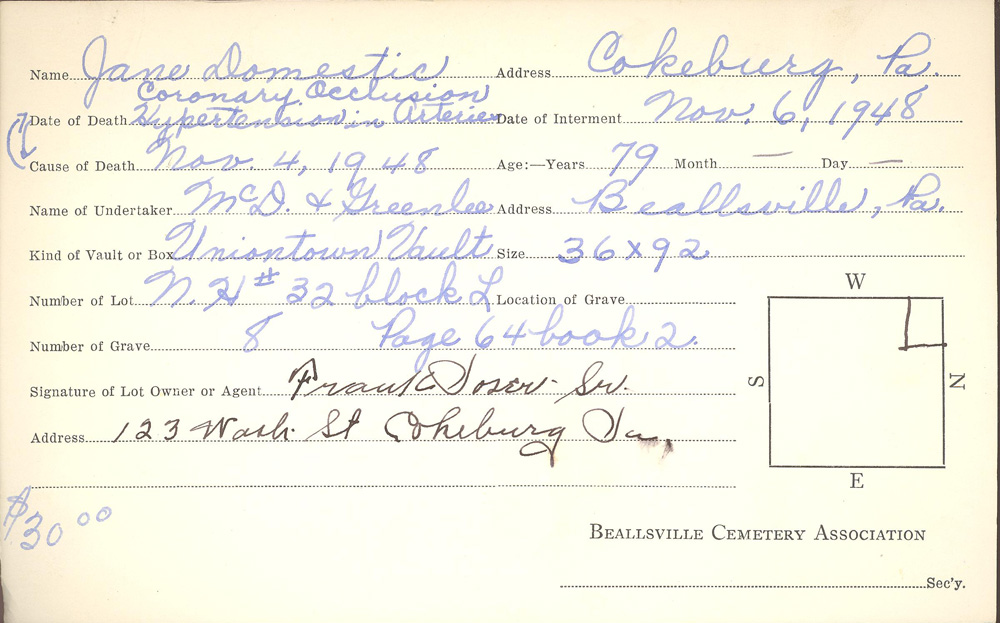 Name Jane Domestic Address Cokeburg, Pa.
Coronary Occlusion
Date of Death Hypertension in Arteries Date of Interment Nov. 6, 1948
Cause of Death Nov. 4, 1948 Age:—Years 79 Month — Day —
Name of Undertaker McD. & Greenlee Address Beallsville, Pa.
Kind of Vault or Box Uniontown Vault Size 36x92
Number of Lot N. H # 32 block L Location of Grave
Number of Grave 8 Page 64 book 2.
Signature of Lot Owner or Agent Frank Doser Sr.
Address 123 Wash. St Cokeburg Pa.
W
S
N
E
$30.00
Beallsville Cemetery Association
Sec'y.